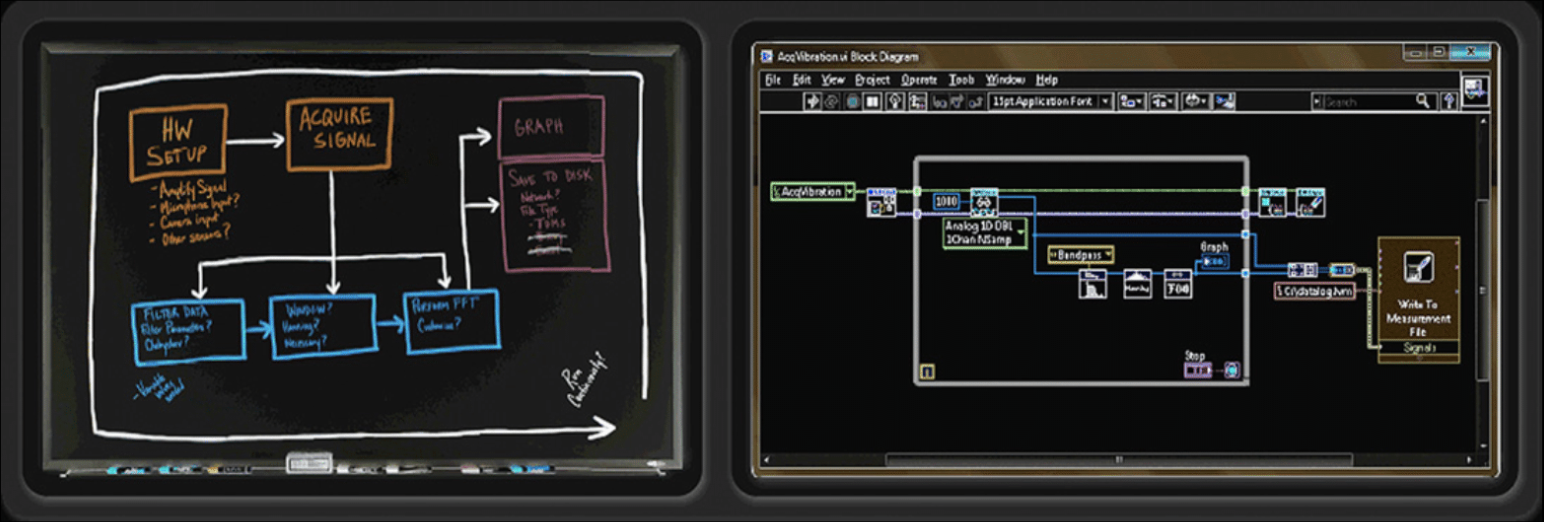 HW
SETUP
- Amplify Signal
- Microphone Input?
- Camera input
- Other sensors?
ACQUIRE
SIGNAL
GRAPH
SAVE TO DISK
Network?
File Type
- TDMS
FILTER DATA
Filter Parameters?
WINDOW?
Hanning?
Necessary?
PERFORM FFT
Customize?
- Variable
Run
Continuously?
AcqVibration.vi Block Diagram
File Edit View Project Operate Tools Window Help
13pt Application Font
Search
AcqVibration
1000
Analog 1D DBL
1Chan NSamp
Bandpass
Graph
C:\datalog.lvm
Write To
Measurement
File
Signals
Stop
i